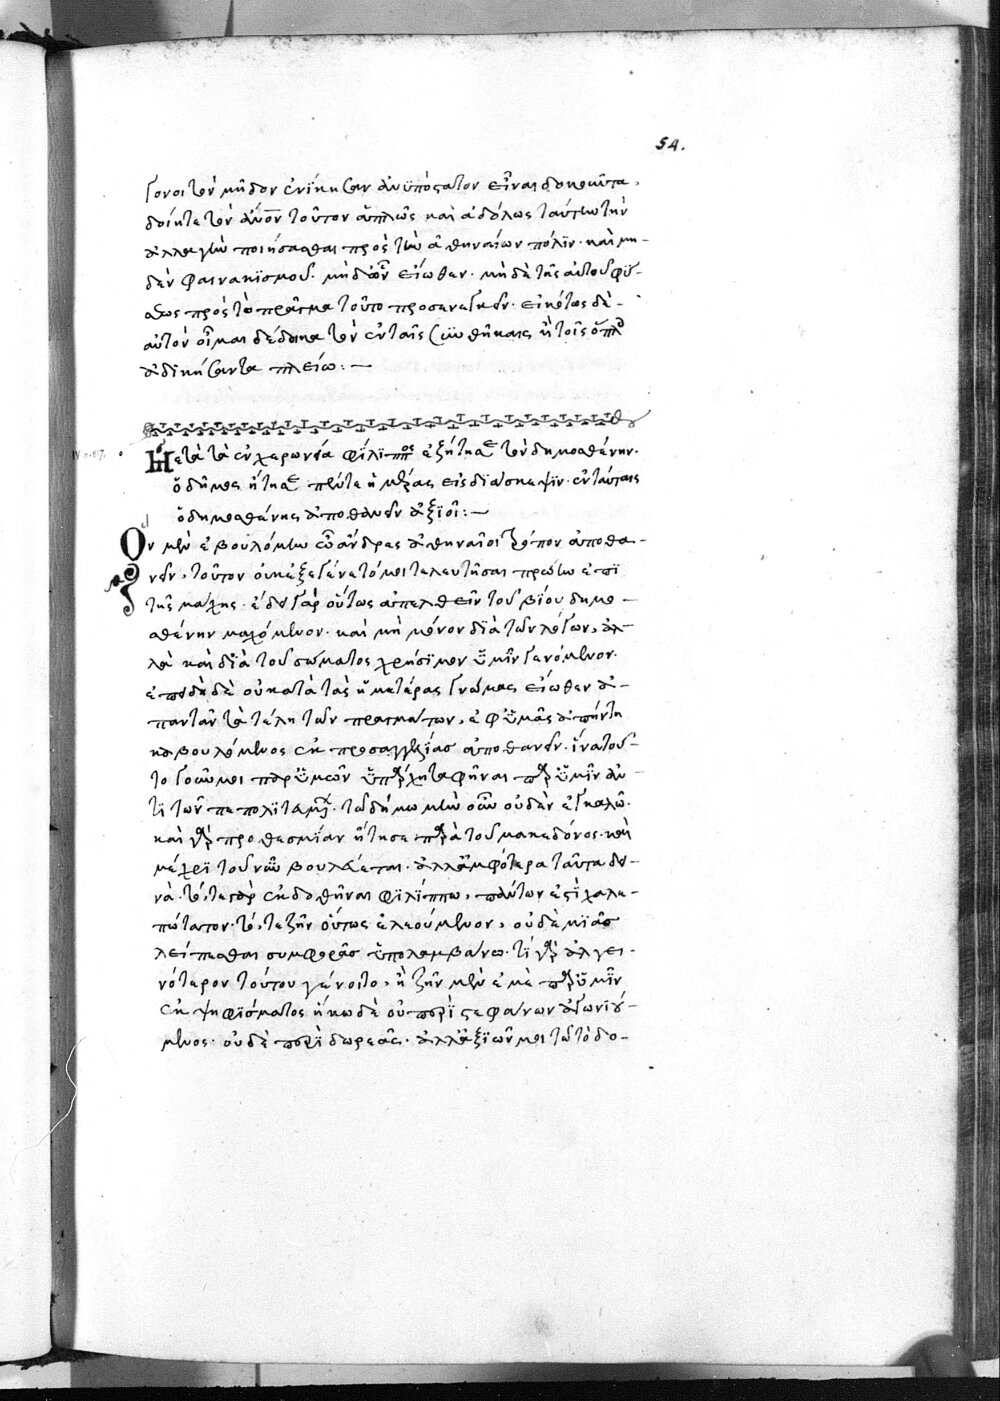 54.
γονοι τὸν μῆδον ἐνίκησαν ἀνυπόστατον εἶναι δοκοῦντα,
τὸν τοῦτον ἁπλῶς καὶ ἀδόλως ταύτην τὴν
ἀλλαγὴν ποιήσασθαι πρὸς τὴν ἀθηναίων πόλιν· καὶ μη-
δὲν φαινακισμοῦ· εἴωθεν· μὴ δὲ τῆς αὐτοῦ φύ-
σεως πρὸς τὸ πρᾶγμα τοῦτο προσενεγκεῖν· εἰκότως δὲ
αὐτὸν οἶμαι δέδοικα τὸν ἐν ταῖς συνθήκαις ἢ τοῖς ὅπλοις
ἀδικήσαντα πλείω: —
Μετὰ τὰ ἐν χερωνεία φίλιππος ἐξήτησε τὸν δημοσθένην·
ὁ δῆμος ἤτησε πέντε ἡμέρας εἰς διάσκεψιν· ἐν ταύταις
ὁ δημοσθένης ἀποθανεῖν ἀξιοῖ: —
Ὃν μὲν ἐβουλόμην ὦ ἄνδρες ἀθηναῖοι τρόπον ἀποθα-
νεῖν, τοῦτον οὐκ ἐξεγένετό μοι τελευτῆσαι πρώτω ἐπὶ
τῆς μάχης· ἔδει γὰρ οὕτως ἀπελθεῖν τοῦ βίου δημο-
σθένην μαχόμενον· καὶ μὴ μόνον διὰ τῶν λόγων, ἀλ-
λὰ καὶ διὰ τοῦ σώματος χρήσιμον ὑμῖν γενόμενον·
ἐπειδὴ δὲ οὐ κατὰ τὰς ἡμετέρας γνώμας εἴωθεν ἀ-
παντᾶν τὰ τέλη τῶν πραγμάτων, ἐφ' ὑμᾶς ἀπήντη
κα βουλόμενος ἐκ προσαγγελίας ἀποθανεῖν· ἵνα τοῦ-
το γοῦν μοι παρ' ὑμῶν ὑπάρχη ταφῆναι παρ' ὑμῖν ἀν
τὶ τῶν πεπολιτευμένων· τῶ δήμω μὲν οὖν οὐδὲν ἐγκαλῶ·
καὶ γὰρ προθεσμίαν ἤτησε παρὰ τοῦ μακεδόνος· καὶ
μέχρι τοῦ νῦν βουλεύεται· ἀλλ' ἀμφότερα ταῦτα δει
νὰ· τό, τε γὰρ ἐκδοθῆναι φιλίππω, πάντων ἐστὶ χαλε-
πώτατον· τό, τε ζῆν οὕτως ἐλεούμενον, οὐδὲ μιᾶς
λείπεσθαι συμφορᾶς ὑπολαμβάνω· τί γὰρ ἀλγει-
νότερον τούτου γένοιτο, ἢ ζῆν μὲν ἐμὲ παρ' ὑμῖν
ἐκ ψηφίσματος ἥκω δὲ οὐ περὶ στεφάνων ἀγωνιού-
μενος· οὐδὲ περὶ δωρεᾶς· ἀλλ' ἀξιῶν μοι τῶ τὸ δο-